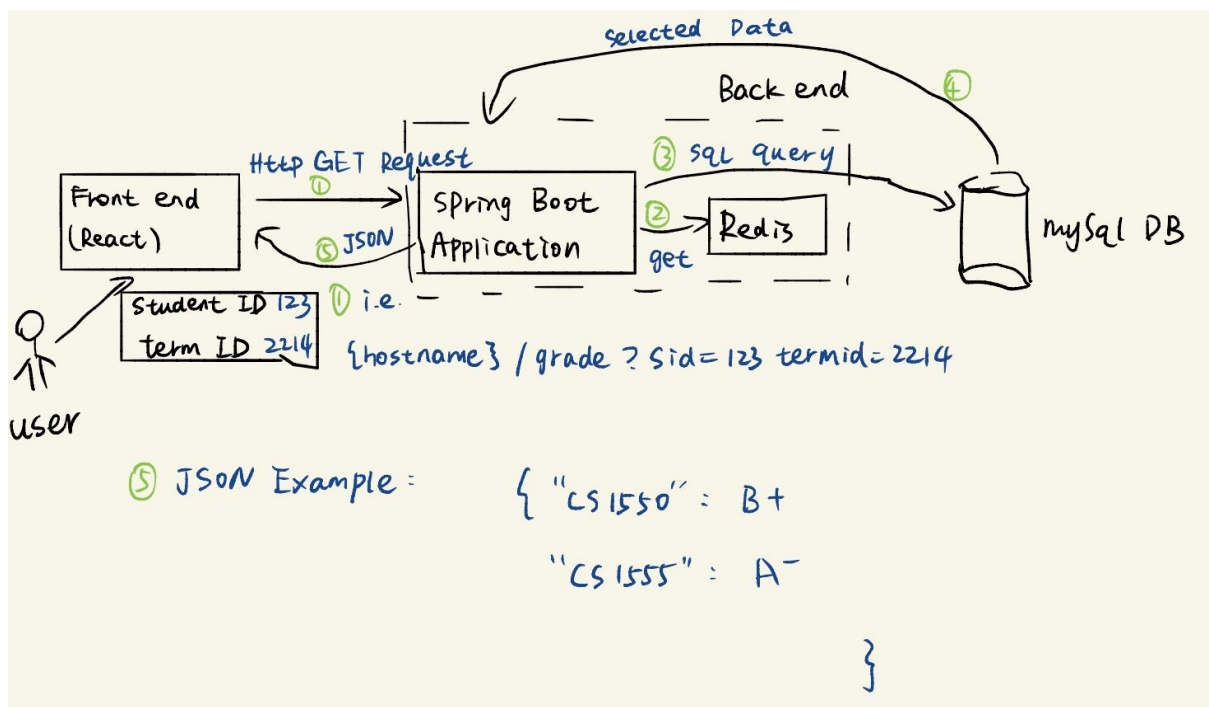 Selected Data
Back end
④
Http GET Request
①
③ SQL query
Front end
(React)
Spring Boot
Application
②
get
Redis
⑤ JSON
mySql DB
Student ID 123
term ID 2214
① i.e.
{hostname} / grade ? Sid=123 termid=2214
user
⑤ JSON Example:
{ "CS1550" : B+
"CS1555" : A-
}